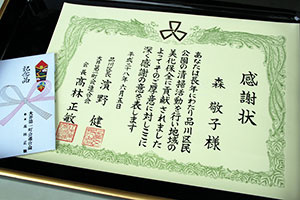 感謝状
森 敬子 様
あなたは長年にわたり品川区民
公園の清掃活動を行い地域の
美化保全に貢献されました
よってそのご厚意に対しここに
深く感謝の意を表します
平成二八年六月五日
品川区長 濱野 健
会長 髙林 正敏
記念品